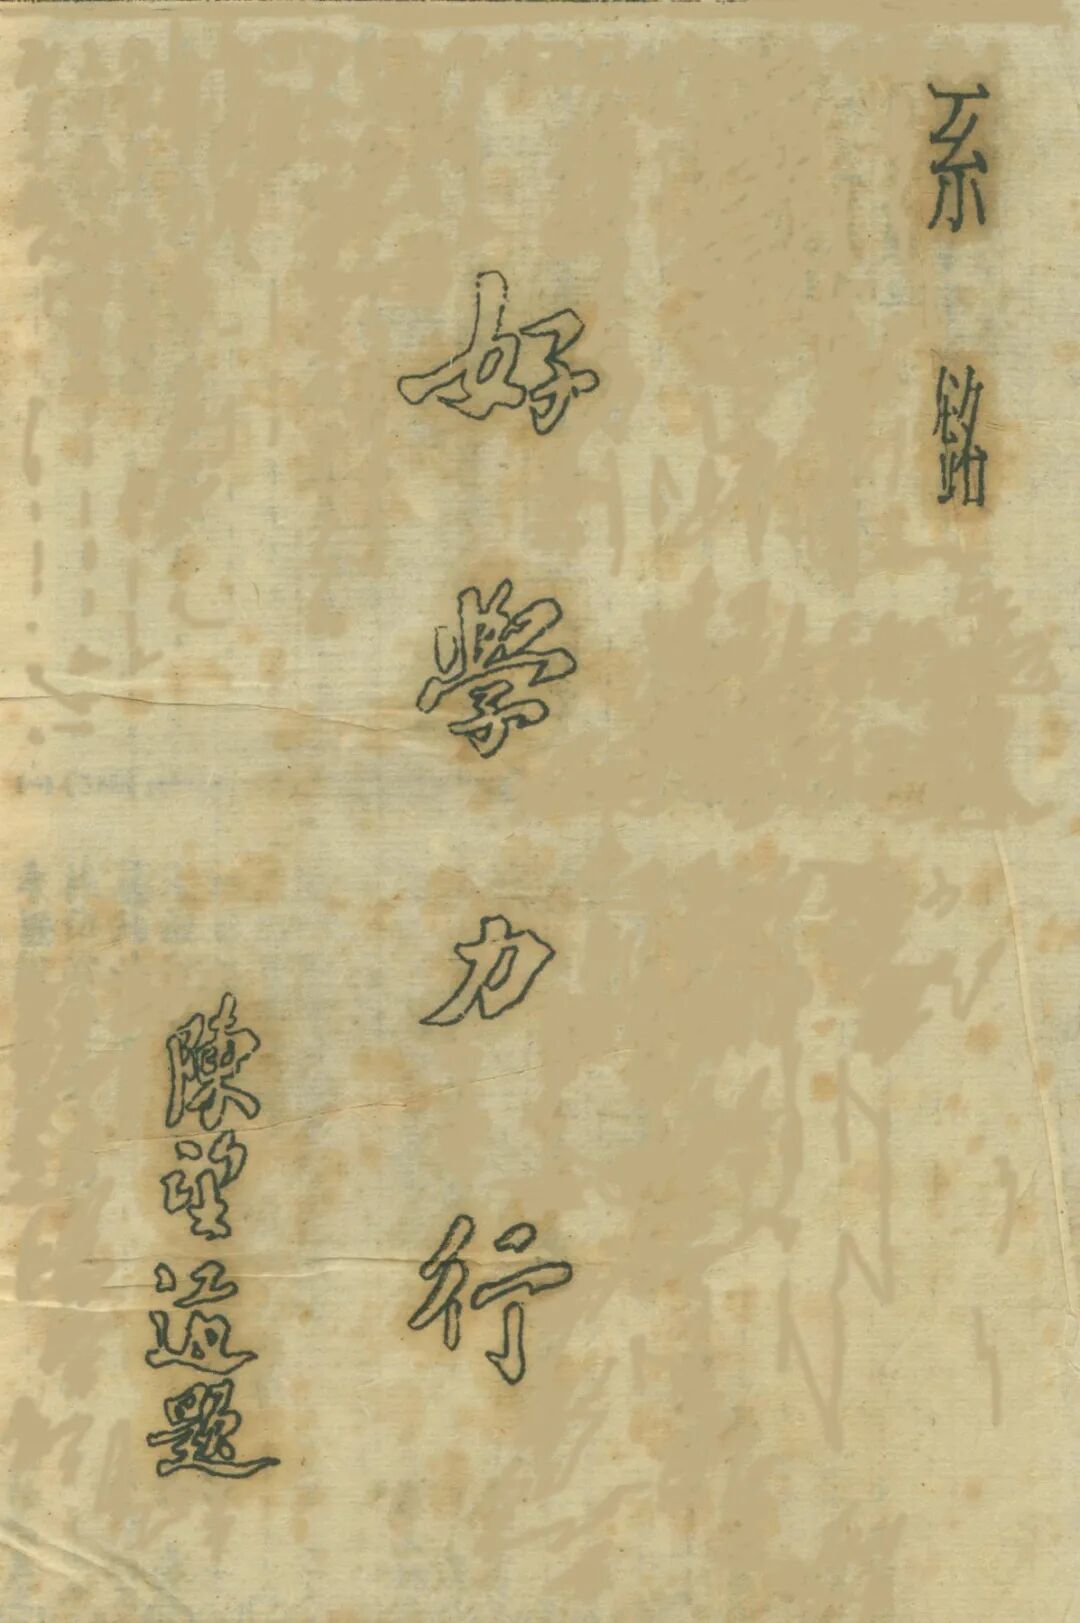 系銘
好學力行
陳望道題